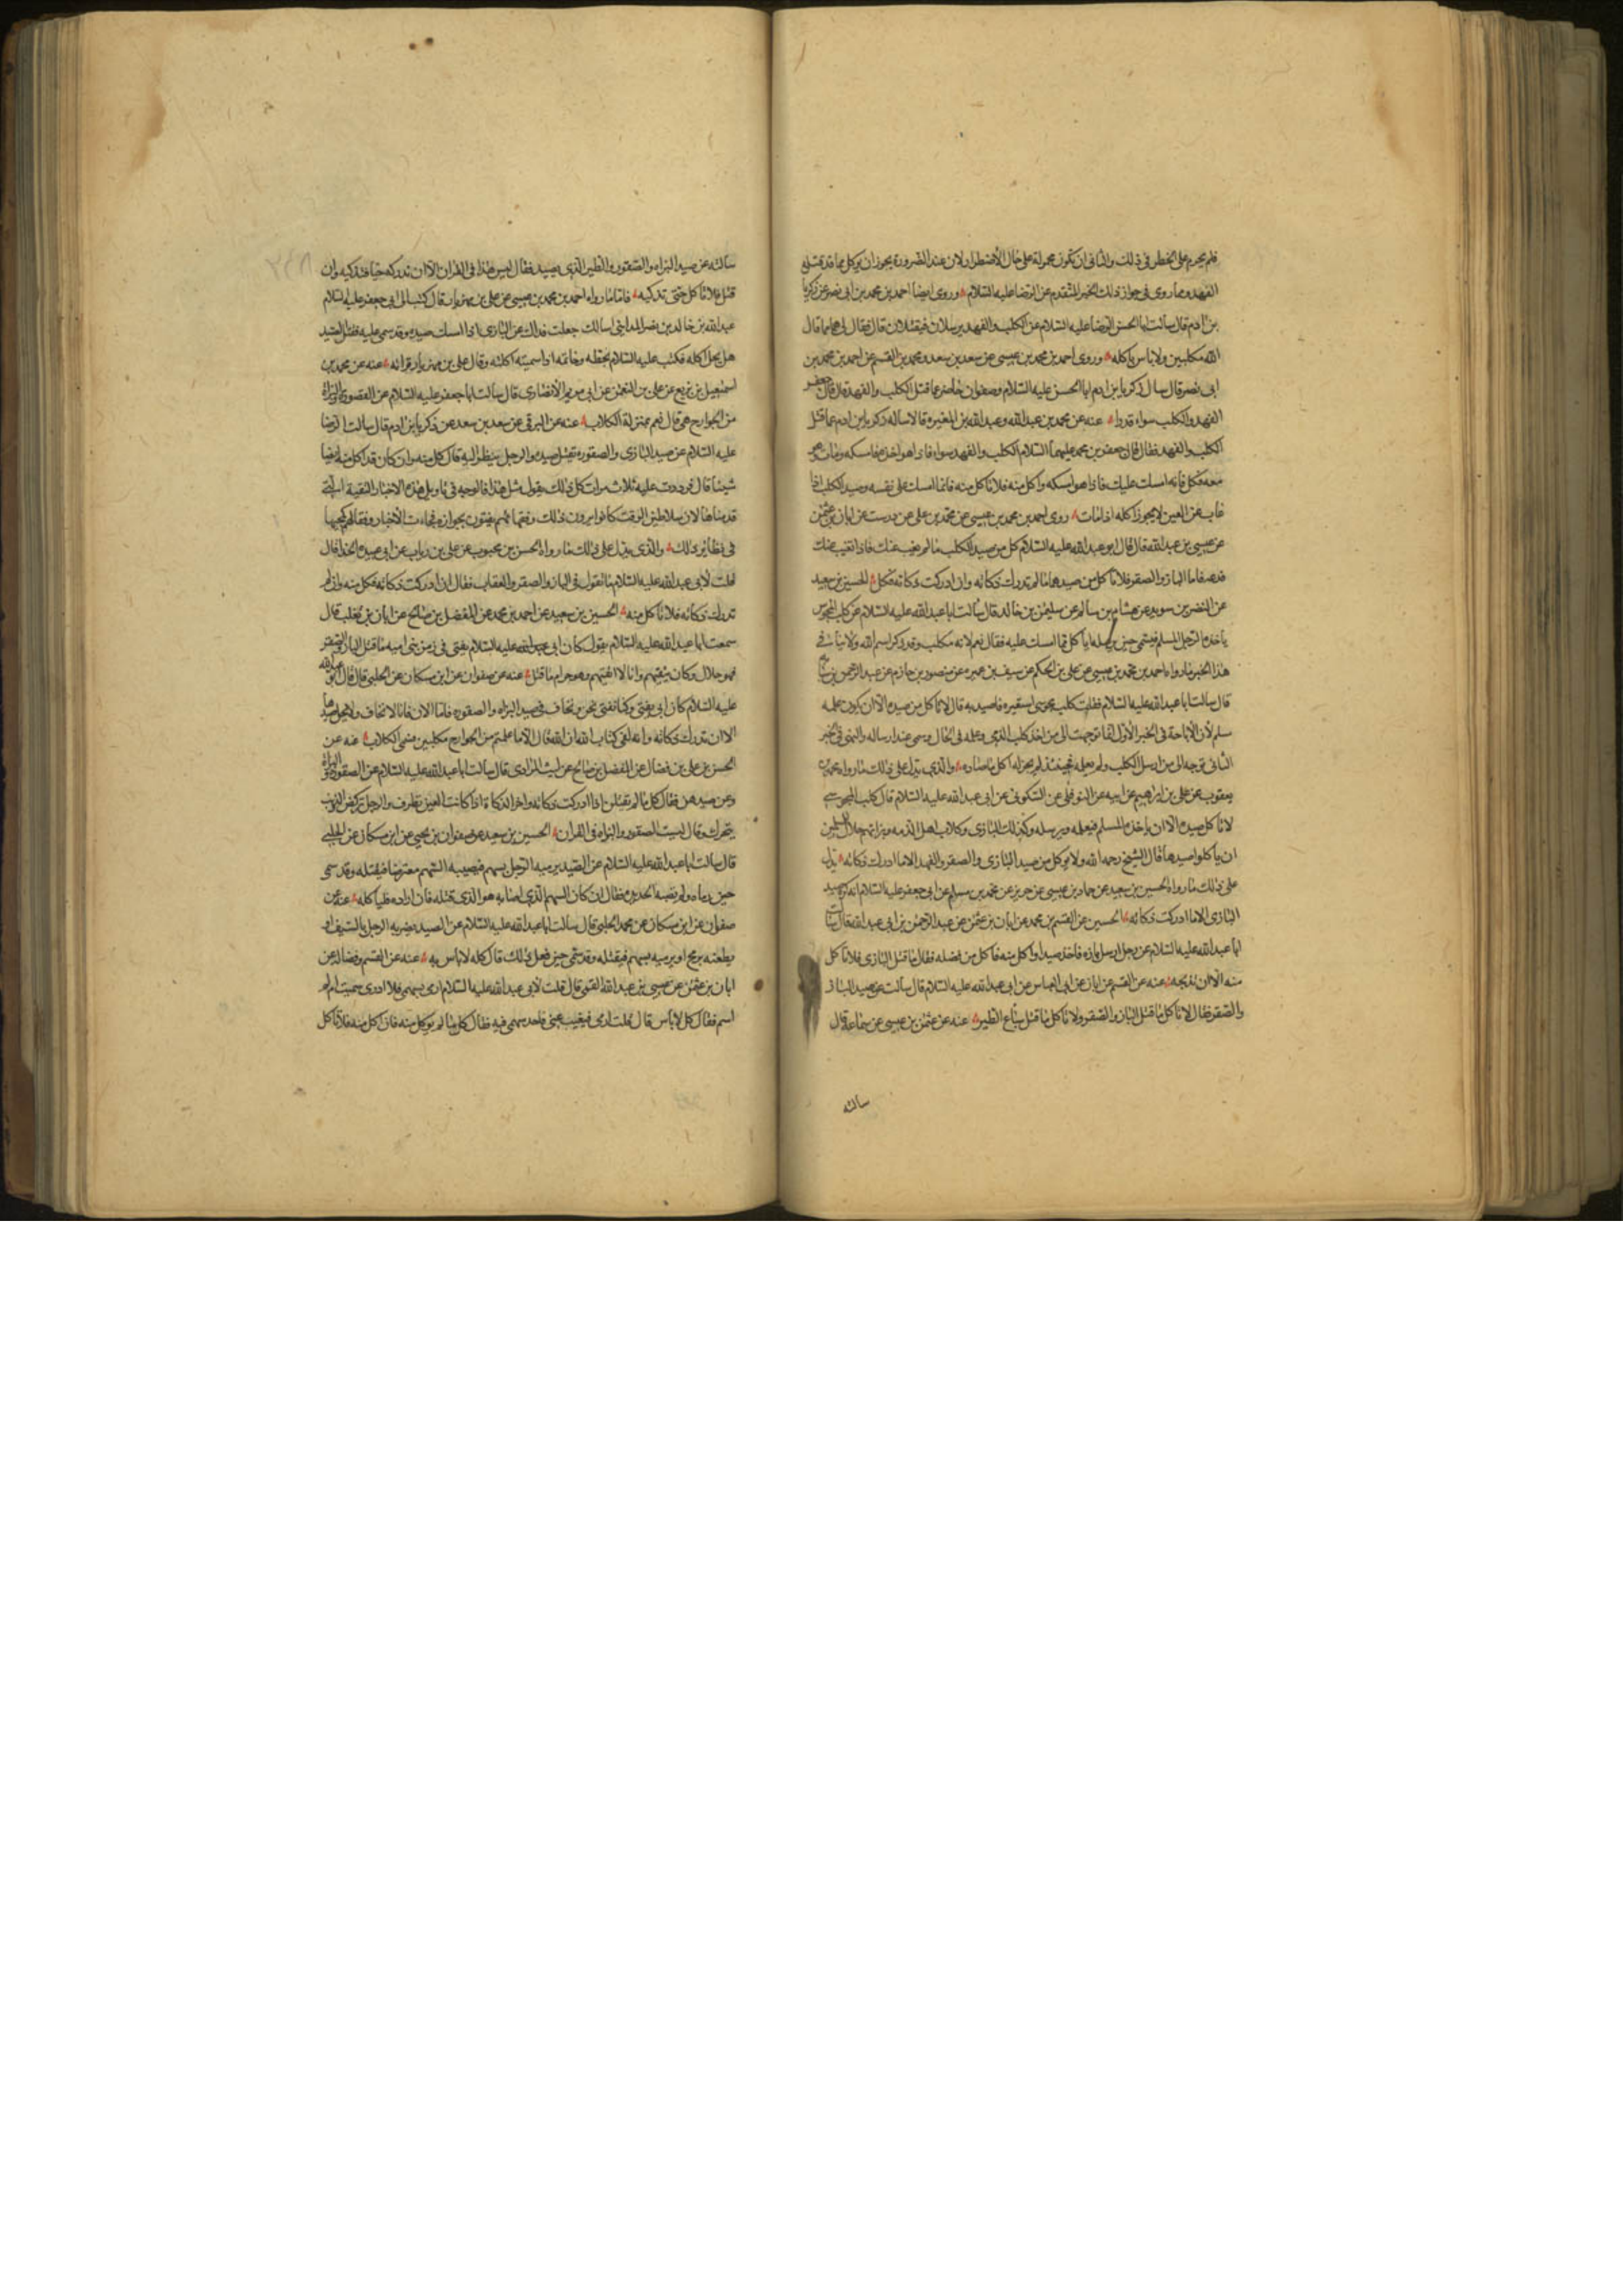 فلم يحرم على الخطر في ذلك والثاني ان تكون محمولة على حال الاضطرار ولان عند الضرورة يجوز ان يؤكل مما قد قتله
الفهد ومما روي في جواز ذلك الخبر المتقدم عن الرضا عليه السلام وروى ايضا احمد بن محمد بن ابي نصر عن زكريا
بن ادم قال سالت ابا الحسن الرضا عليه السلام عن الكلب والفهد يرسلان فيقتلان قال فقال لي هما مما قال
الله مكلبين ولا باس باكله وروى احمد بن محمد بن عيسى عن سعد بن سعد ومحمد بن القسم عن احمد بن محمد بن
ابي نصر قال سال زكريا بن ادم ابا الحسن عليه السلام وصفوان حاضر عما قتل الكلب والفهد فقال قال جعفر
الفهد والكلب سواء قدرا عنه عن محمد بن عبد الله وعبد الله بن المغيره قالا ساله زكريا بن ادم عما قتل
الكلب والفهد فقال قال جعفر بن محمد عليهما السلام الكلب والفهد سواء فاذا هو اخذه فامسكه ومات وهو
معه فكل فانه امسك عليك فاذا هو امسكه واكل منه فلا تاكل منه فانما امسك على نفسه وصيد الكلب اذا
غاب عن العين لا يجوز اكله اذا مات روى احمد بن محمد بن عيسى عن محمد بن علي عن درست عن ابان بن عثمن
عن عيسى بن عبد الله قال قال ابو عبد الله عليه السلام كل من صيد الكلب ما لم يغب عنك فاذا تغيب عنك
فدعه فاما الباز والصقر فلا تاكل من صيدهما ما لم تدرك ذكاته وان ادركت ذكاته فكل الحسين بن سعيد
عن النضر بن سويد عن هشام بن سالم عن سليمن بن خالد قال سالت ابا عبد الله عليه السلام عن كلب المجوس
ياخذه الرجل المسلم فيسمي حين يرسله ايأكل مما امسك عليه فقال نعم لانه مكلب وقد ذكر اسم الله ولا ينافي
هذا الخبر ما رواه احمد بن محمد بن عيسى عن علي بن الحكم عن سيف بن عميره عن منصور بن حازم عن عبد الرحمن بن سيابة
قال سالت ابا عبد الله عليه السلام فقلت كلب مجوسي استعيره فاصيد به قال لا تاكل من صيده الا ان يكون علمه
مسلم لان الاباحة في الخبر الاول انما توجهت الى من اخذ كلب الذمي وعلمه في الحال وسمى عند ارساله والنهي في الخبر
الثاني توجه الى من ارسل الكلب ولم يعلمه فحينئذ لم يجز له اكل ما صاده والذي يدل على ذلك ما رواه محمد بن
يعقوب عن علي بن ابراهيم عن ابيه عن النوفلي عن السكوني عن ابي عبد الله عليه السلام قال كلب المجوسي
لا تاكل صيده الا ان ياخذه المسلم فيعلمه ويرسله وكذلك البازي وكلاب اهل الذمه وبزاتهم حلال للمسلمين
ان ياكلوا صيدها قال الشيخ رحمه الله ولا يؤكل من صيد البازي والصقر والفهد الا ما ادرك ذكاته يدل
على ذلك ما رواه الحسين بن سعيد عن حماد بن عيسى عن حريز عن محمد بن مسلم عن ابي جعفر عليه السلام انه كره صيد
البازي الا ما ادركت ذكاته الحسين عن القسم بن محمد عن ابان بن عثمن عن عبد الرحمن بن ابي عبد الله قال سالت
ابا عبد الله عليه السلام عن رجل ارسل بازه فاخذ صيدا واكل منه فاكل من فضله فقال ما قتل البازي فلا تاكل
منه الا ان تذبحه عنه عن القسم عن ابان عن ابي العباس عن ابي عبد الله عليه السلام قال سالت عن صيد الباز
والصقر فقال لا تاكل ما قتل الباز والصقر ولا تاكل ما قتل سباع الطير عنه عن عثمن بن عيسى عن سماعة قال
سالته
سالته عن صيد البزاه والصقور والطير الذي يصيد فقال ليس هذا في القران الا ان تدركه حيا فتذكيه وان
قتل فلا تاكل حتى تذكيه فاما ما رواه احمد بن محمد بن عيسى عن علي بن مهزيار قال كتب الى ابي جعفر عليه السلام
عبد الله بن خالد بن نصر المدايني اسالك جعلت فداك عن البازي اذا امسك صيده وقد سمى عليه فقتل الصيد
هل يحل اكله فكتب عليه السلام بخطه وخاتمه اذا سميته اكلته وقال علي بن مهزيار قرأته عنه عن محمد بن
اسمعيل بن بزيع عن علي بن النعمن عن ابي مريم الانصاري قال سالت ابا جعفر عليه السلام عن الصقورة والبزاة
من الجوارح هي قال نعم بمنزلة الكلاب عنه عن البرقي عن سعد بن سعد عن زكريا بن ادم قال سالت الرضا
عليه السلام عن صيد البازي والصقوره يقتل صيده والرجل ينظر اليه قال كل منه وان كان قد اكل منه ايضا
شيئا قال فرددت عليه ثلاث مرات كل ذلك يقول مثل هذا فالوجه في تاويل هذه الاخبار التقية التي
قدمناها لان سلاطين الوقت كانوا يرون ذلك وفقهاءهم يفتون بجوازه فجاءت الاخبار وفقا لهم كما جاء
في نظاير ذلك والذي يدل على ذلك ما رواه الحسن بن محبوب عن علي بن رياب عن ابي عبيده الحذا قال
قلت لابي عبد الله عليه السلام ما تقول في الباز والصقر والعقاب فقال ان ادركت ذكاته فكل منه وان لم
تدرك ذكاته فلا تاكل منه الحسين بن سعيد عن احمد بن محمد عن المفضل بن صالح عن ابان بن تغلب قال
سمعت ابا عبد الله عليه السلام يقول كان ابي عليه السلام يفتي في زمن بني اميه ما قتل الباز والصقر
فهو حلال وكان يتقيهم وانا لا اتقيهم وهو حرام ما قتل عنه عن صفوان عن ابن مسكان عن الحلبي قال قال ابو عبد الله
عليه السلام كان ابي يفتي وكنا نفتي نحن ونخاف في صيد البزاه والصقوره فاما الان فانا لا نخاف ولا يحل صيدها
الا ان تدرك ذكاته وانه لفي كتاب الله ان الله قال الا ما علمتم من الجوارح مكلبين فسمى الكلاب عنه عن
الحسن بن علي بن فضال عن المفضل بن صالح عن ليث المرادي قال سالت ابا عبد الله عليه السلام عن الصقورة والبزاة
وعن صيدهن فقال كل ما لم يقتلن اذا ادركت ذكاته واخر الذكاة اذا كانت العين تطرف والرجل تركض والذنب
يتحرك وقال ليست الصقور والبزاه في القران الحسين بن سعيد عن صفوان بن يحيى عن ابن مسكان عن الحلبي
قال سالت ابا عبد الله عليه السلام عن الصيد يرميه الرجل بسهم فيصيبه السهم معترضا فيقتله وقد سمى
حين رماه ولم تصبه الحديده فقال ان كان السهم الذي اصابه هو الذي قتله فان اراده فلياكله عنه عن
صفوان عن ابن مسكان عن محمد الحلبي قال سالت ابا عبد الله عليه السلام عن الصيد يضربه الرجل بالسيف او
يطعنه برمح او يرميه بسهم فيقتله وقد سمى حين فعل ذلك قال كله لا باس به عنه عن القسم وفضاله عن
ابان بن عثمن عن عيسى بن عبد الله القمي قال قلت لابي عبد الله عليه السلام ارمي بسهمي فلا ادري سميت ام لم
اسم فقال كل لا باس قال قلت ارمي فيغيب عني فاجد سهمي فيه فقال كل ما لم يؤكل منه فان اكل منه فلا تاكل